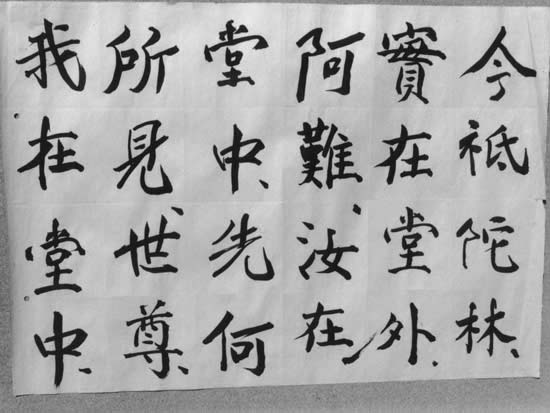 今祇陀林、
實在堂外、
阿難、汝在
堂中、先何
所見、世尊、
我在堂中、